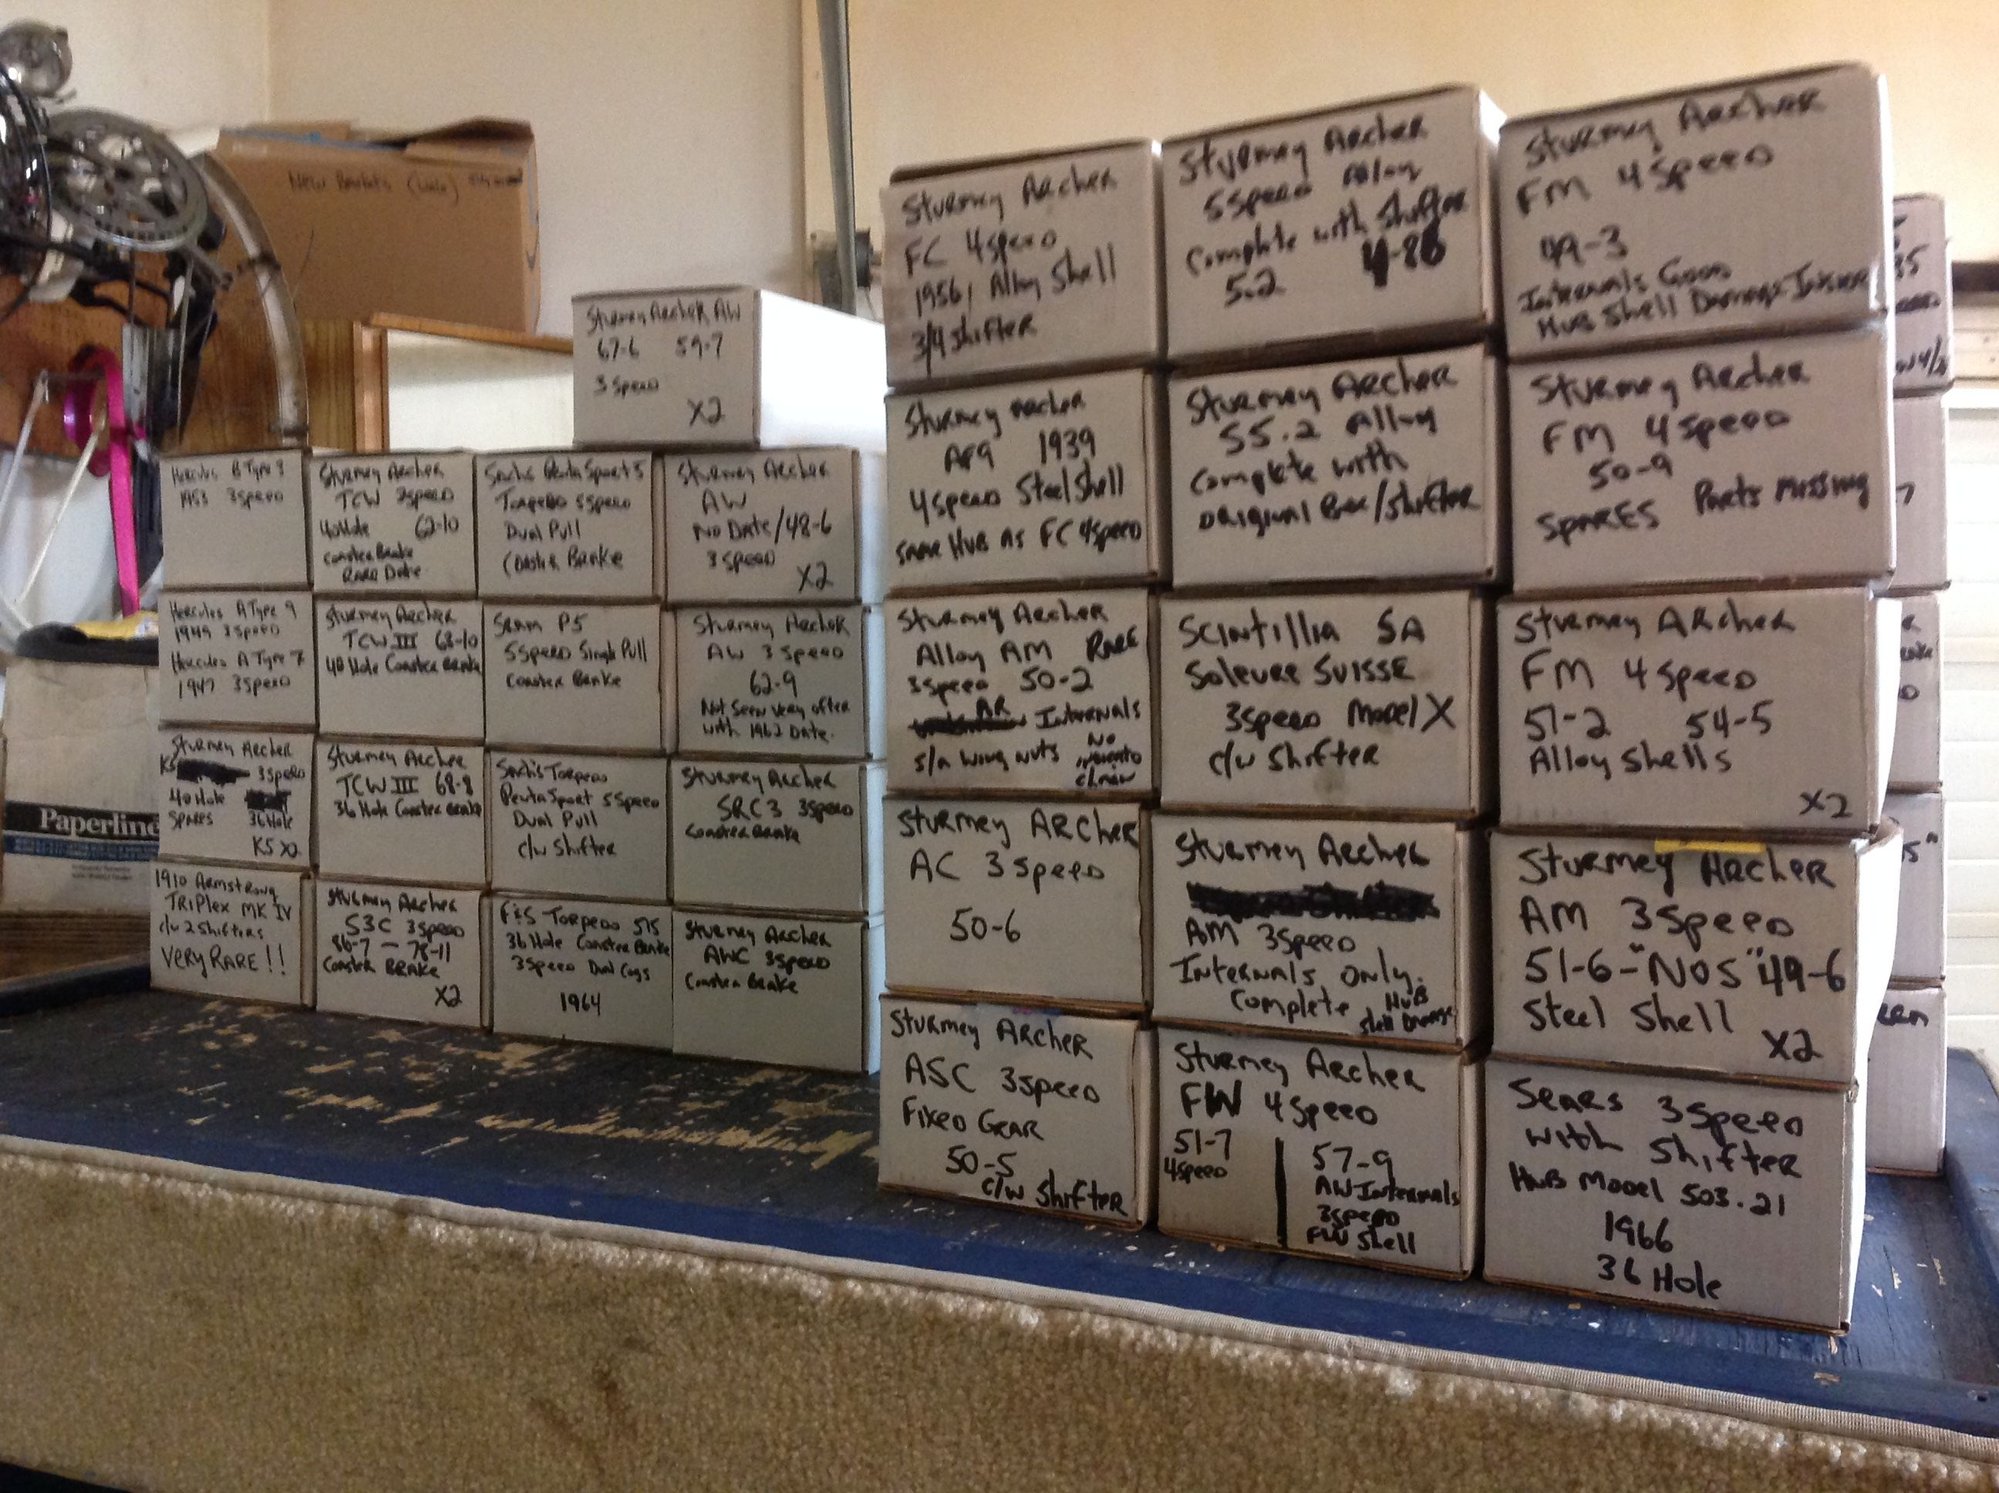 New
Sturmey Archer AW
67-6 59-7
3 Speed
X2
Hercules B Type 3
1953 3 Speed
Hercules A Type 9
1949 3 Speed
Hercules A Type 7
1947 3 Speed
Sturmey Archer
K5 3 Speed
40 Hole
SPARES 36 Hole
K5 X2
1910 Armstrong
TRIPlex MK IV
c/w 2 Shifters
Very RARE!!
Sturmey Archer
TCW 3 Speed
40 Hole 62-10
Coaster Brake
Rare Date
Sturmey Archer
TCW III 68-10
40 Hole Coaster Brake
Sturmey Archer
TCW III 68-8
36 Hole Coaster Brake
Sturmey Archer
S3C 3 Speed
86-7 — 78-11
Coaster BRAKE
X2
Sachs Penta Sport 5
Torpedo 5 Speed
Dual Pull
Coaster Brake
Sram P5
5 Speed Single Pull
Coaster Brake
Sachs Torpedo
Penta Sport 5 Speed
Dual Pull
c/w Shifter
F&S Torpedo 515
36 Hole Coaster Brake
3 Speed Dual Cogs
1964
Sturmey Archer
AW
No Date/48-6
3 Speed
X2
Sturmey Archer
AW 3 Speed
62-9
Not Seen very often
with 1962 Date.
Sturmey Archer
SRC3 3 Speed
Coaster Brake
Sturmey Archer
AWC 3 Speed
Coaster Brake
Sturmey Archer
FC 4 Speed
1956, Alloy Shell
3/4 Shifter
Sturmey Archer
AF9 1939
4 Speed Steel Shell
Same Hub as FC 4 Speed
Sturmey Archer
Alloy AM RARE
3 Speed 50-2
AR Internals
s/a wing nuts No
Sturmey Archer
AC 3 Speed
50-6
Sturmey Archer
ASC 3 Speed
Fixed Gear
50-5
c/w Shifter
Sturmey Archer
5 Speed Alloy
Complete with Shifter
5.2 4-88
Sturmey Archer
S5.2 Alloy
Complete with
original Box/Shifter
Scintillia SA
Soleure SUISSE
3 Speed Model X
c/w Shifter
Sturmey Archer
AM 3 Speed
Internals Only.
Complete Hub
Shell Damage
Sturmey Archer
FW 4 Speed
51-7
4 Speed
57-9
AW Internals
3 Speed
FW Shell
Sturmey Archer
FM 4 Speed
49-3
Internals Good
Hub Shell Damage Inside
Sturmey Archer
FM 4 Speed
50-9
SPARES Parts Missing
Sturmey Archer
FM 4 Speed
51-2 54-5
Alloy Shells
X2
Sturmey Archer
AM 3 Speed
51-6-"NOS" 49-6
Steel Shell
X2
Sears 3 Speed
with Shifter
Hub Model 503.21
1966
36 Hole
Paperline